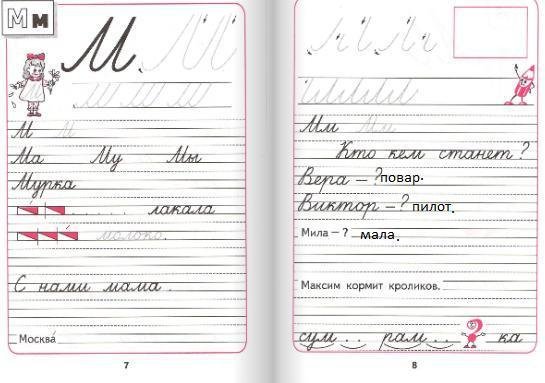 Мм
М М М
М М М
М М
Ма Му Мы
Мурка
лакала
молоко.
С нами мама.
Москва́
7
м м м м
Мм Мм
Кто кем станет?
Вера – ? повар.
Виктор – ? пилот.
Мила – ? мала.
Максим кормит кроликов.
сум . . рам . . ? ка
8